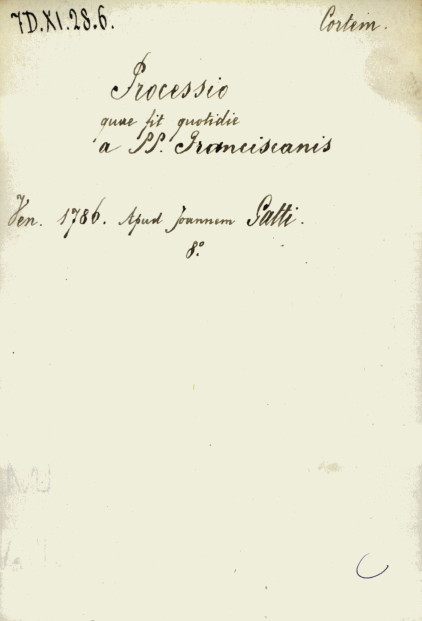 7D.XI.28.6.
Cortein.
Processio
quae fit quotidie
a PP. Franciscanis
Ven. 1786. Apud Joannem Gatti.
8º